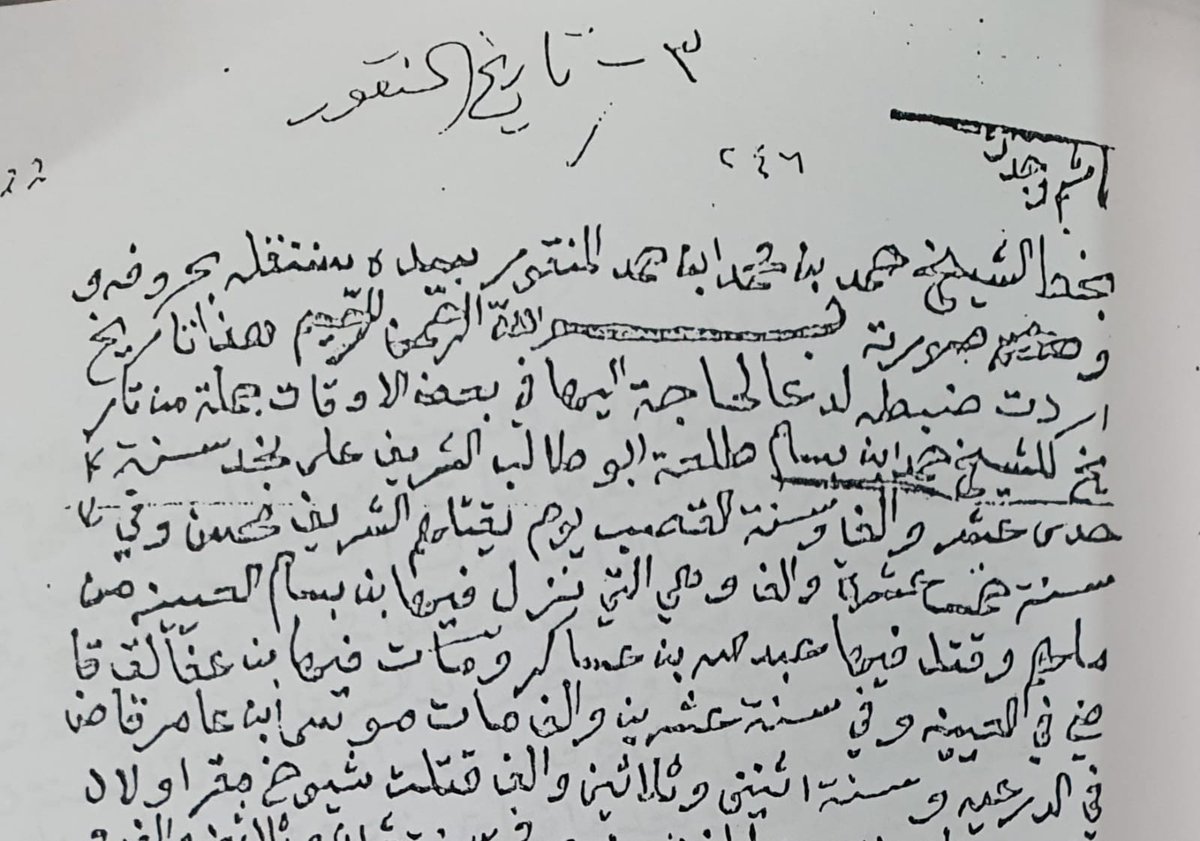 ٣ - تاريخ المنقور
٢٤٦
وجدت
بخط الشيخ حمد بن محمد ابن حمد المنقور بيده بنقله بحروفه و
صورته بسم الله الرحمن الرحيم هذا تاريخ
اردت ضبطه لدعا الحاجة اليها في بعض الاوقات جملة من تار
يخ للشيخ حمد ابن بسام طلعة ابو طالب الشريف على نجد سنة
حدى عشر والف وسنة القصب يوم يقتلهم الشريف محسن وفي
سنة خمسة عشر والف وهي التي نزل فيها بن بسام العيينه من
ملهم وقتل فيها عبد الله بن عساكر ومات فيها بن عفالق قا
ضي في العيينه وفي سنة عشرين والف مات موسى ابن عامر قاض
في الدرعيه وسنة اثنين وثلاثين والف قتلت شيوخ مقر اولاد